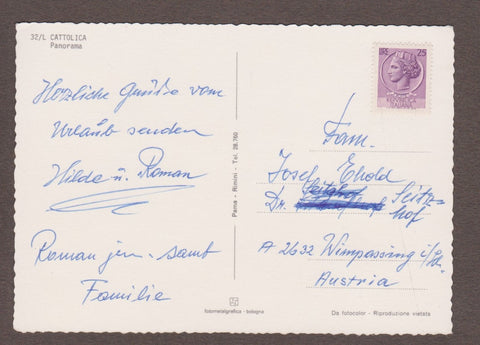 32/L CATTOLICA
Panorama
Herzliche Grüße vom
Urlaub senden
Hilde u. Roman
Roman jun. samt
Familie
Pama - Rimini - Tel. 28.760
fotometalgrafica - bologna
LIRE 25
Fam.
Josef Ehold
Dr. Seitz-
hof
A 2632 Wimpassing i/
Austria
Da fotocolor - Riproduzione vietata